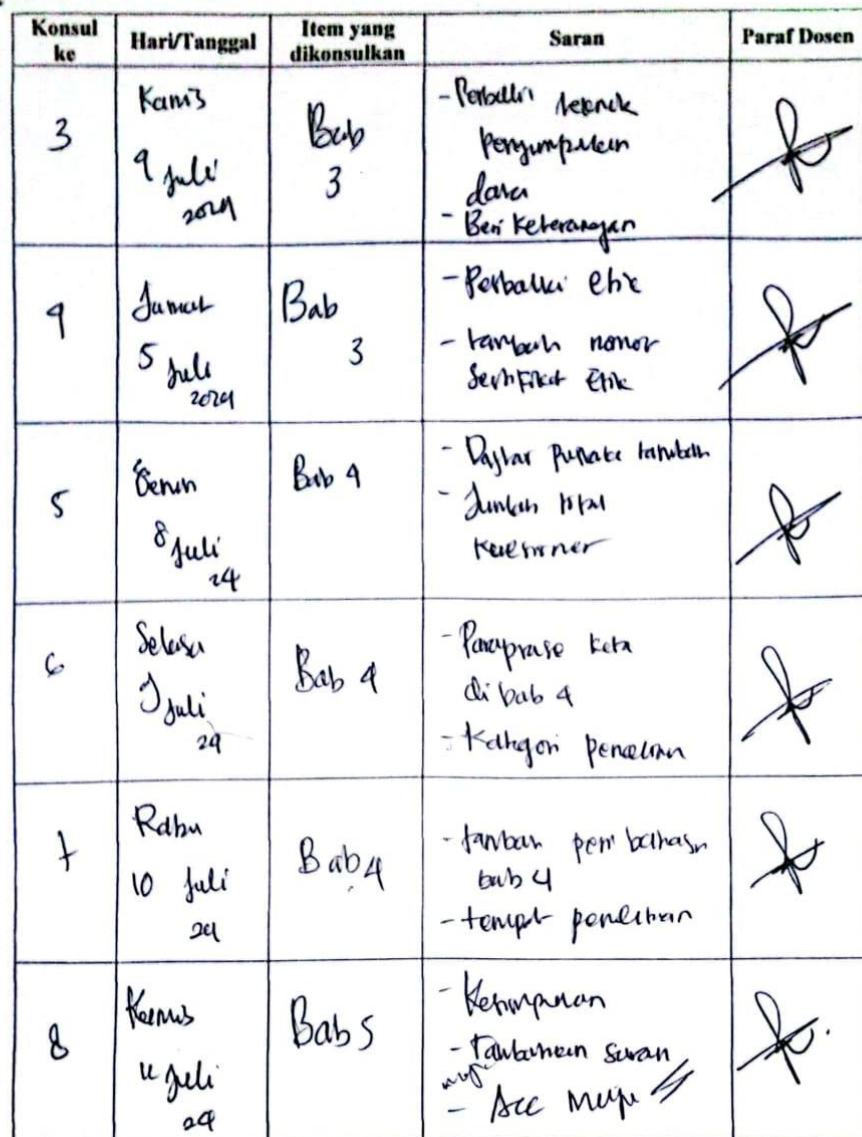 Konsul ke
Hari/Tanggal
Item yang dikonsulkan
Saran
Paraf Dosen
3
Kamis
4 Juli
2024
Bab
3
- Perbaiki teknik
Pengumpulan
data
- Beri Keterangan
4
Jumat
5 Juli
2024
Bab
3
- Perbaiki etik
- tambah nomor
Sertifikat Etik
5
Senin
8 Juli
24
Bab 4
- Daftar Pustaka tambah
- Jumlah total
Kuesioner
6
Selasa
9 Juli
24
Bab 4
- Paraprase kata
di bab 4
- Kategori penelitian
7
Rabu
10 Juli
24
Bab 4
- tambah pembahasan
bab 4
- tempat penelitian
8
Kamis
11 Juli
24
Bab 5
- Kesimpulan
- Tambahan saran
- Acc Maju